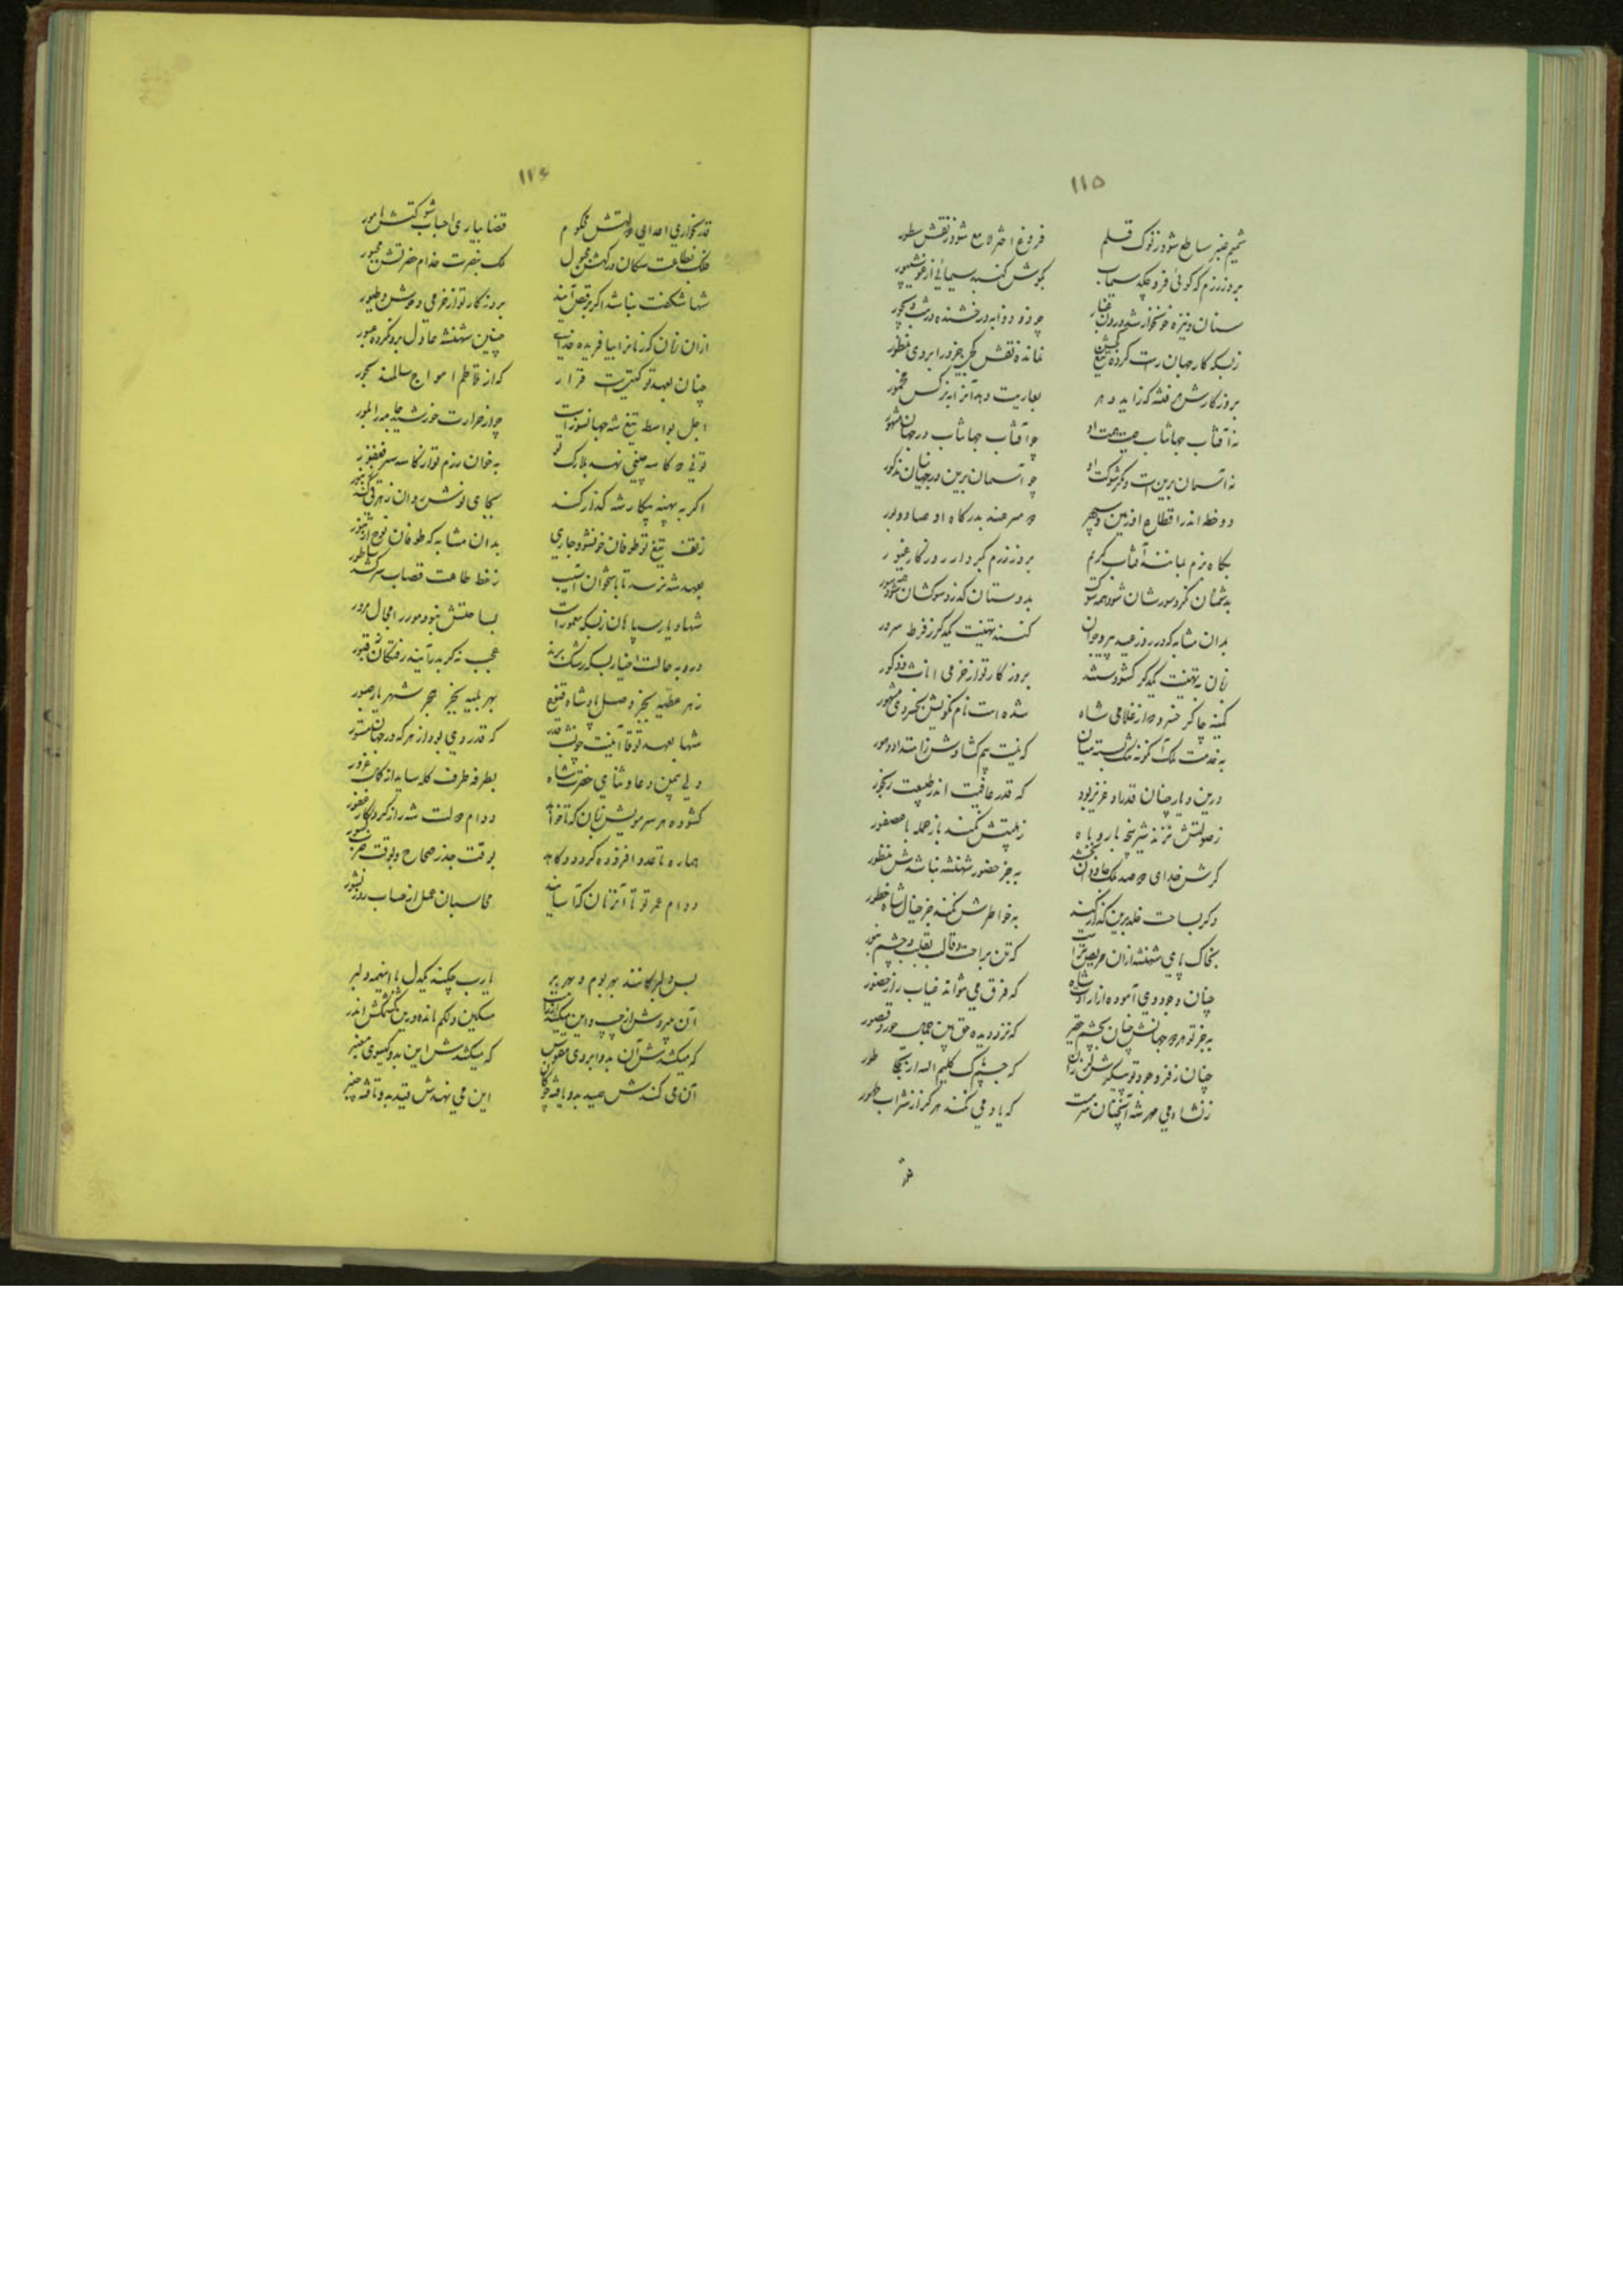 ۱۱۵
شمیم عنبر ساطع شود ز نوک قلم فروغ اختر لامع شود ز نقش سطور
بروز رزم که گوئی فرو چکد سیماب بگوش گنبد سیمائی از
سنان و نیزه خونخوار شه درون غبار چو ذو ذوابه درخشنده در شب دیجور
زبسکه کار جهان راست کرده تیغ کجش نمانده نقش کجی جز در ابروی منظور
بروزگارش هر فتنه که زاید دهر بعاریت دهد آنرا به نرگس مخمور
نه آفتاب جهانتاب حشمت او چو آفتاب جهانتاب در جهان مشهور
نه آسمان برین است و شوکت او چو آسمان برین در جهانیان مذکور
دو خط اندر اقطاع او زمین و سپهر دو سرهند بدرگاه او صبا و دبور
بگاه بزم بمانند آفتاب کریم بروز رزم بکردار روزگار غیور
بدشمنان گذرد سورشان شود همه سوک بدوستان گذرد سوکشان شود همه سور
بدان مشابه که در روز عید پیر و جوان کنند تهنیت یکدگر ز فرط سرور
زنان به تهنیت یکدگر گشودستند بروز گار تو از خرمی اناث و ذکور
کمینه چاکر خسرو که از غلامی شاه شده است نام نکویش بخسروی مشهور
بخدمت ملک آنگونه تنگ بسته میان که نیست بیم گشادش ز امتداد دهور
درین دیار چنان قدرداد عزیز بود که قدر عافیت اندر طبیعت رنجور
ز صولتش نزند شیر پنجه با روباه ز هیبتش نکند باز حمله با عصفور
گرش خدای دو صد ملک جاودان بخشد بجز حضور شهنشه نباشدش منظور
وگر بساحت خلد برین گذار کند بخواطرش نکند جز خیال شاه خطور
بخاک پای شهنشه از آن حریص تر است که تن براحت و قالب بقلب و چشم بنور
چنان وجود وی آموده از ارادت شاه که فرق می نتواند غیاب را ز حضور
بجز تو هر دو جهانش چنان بچشم حقیر که نزد دیده حق بین جمال حور و قصور
چنان ز فر وجود تو پیکرش لرزان که جسم پاک کلیم الله از تجلی طور
ز نشاء می مهر شه آنچنان سرمست که یاد می نکند هرگز از شراب طهور
قدر
۱۱۶
قدر بخواری اعدای دولتش محکوم قضا بیاری احباب شوکتش مامور
فلک بطاعت سکان درگهش مجبول ملک بنصرت خدام حضرتش مجبور
شها شگفت نباشد اگر برقص آیند بروزگار تو از خرمی وحوش و طیور
از آن زمان که زمانرا بیافریده خدای چنین شهنشه عادل برو نکرده عبور
چنان بعهد تو گیتیست قرار که از تلاطم امواج سالمند بحور
اجل بواسطه تیغ شه جهانسوز است چو از حرارت خورشید جامه بلور
توئی که کاسه چینی نهد بلارک تو بخوان رزم تو از کاسه سر فغفور
اگر به پهنه پیکار شه گذار کند بجای نوش روان زهر قی کند زنبور
ز تف تیغ تو طوفان خون شود جاری بدان مشابه که طوفان نوح از تنور
بعهد شه نرسد تا باستخوان آسیب ز خط طاعت قصاب سر کشد ساطور
شها دیار سپاهان زبسکه معمور است بساحتش نبود مور را مجال مرور
درو به حالت احیا زبسکه رشک برند عجب نه گر بدر آیند رفتگان ز قبور
ز هر عطیه بجز وصل پادشاه قنوع بهر بلیه بجز هجر شهریار صبور
شها بعهد تو قاآنیست چون شب قدر که قدر وی بود از هر که در جهان مستور
ولی بیمن دعا و ثنای حضرت شاه بطرف طرف کله ساید از کمال غرور
گشوده هر سر مویش زبان که تا خواند دوام دولت شه را ز کردگار غفور
هماره تا عدد افزوده گردد و کاهد بوقت جذر صحاح و بوقت ضرب کسور
دوام عمر تو تا آنزمان که آسایند محاسبان عمل از حساب روز نشور
بس دلبرکانند بهر بوم و بهر بر یارب چکند یکدل با اینهمه دلبر
آن میرودش از چپ و این میکشد از راست مسکین دلکم مانده در این کشمکش اندر
که میکشدش آن بدو ابروی مقوس که میکشدش این بدو گیسوی معنبر
آن می کندش صید بدو بافته چوگان این می نهدش قید بدو تافته چنبر